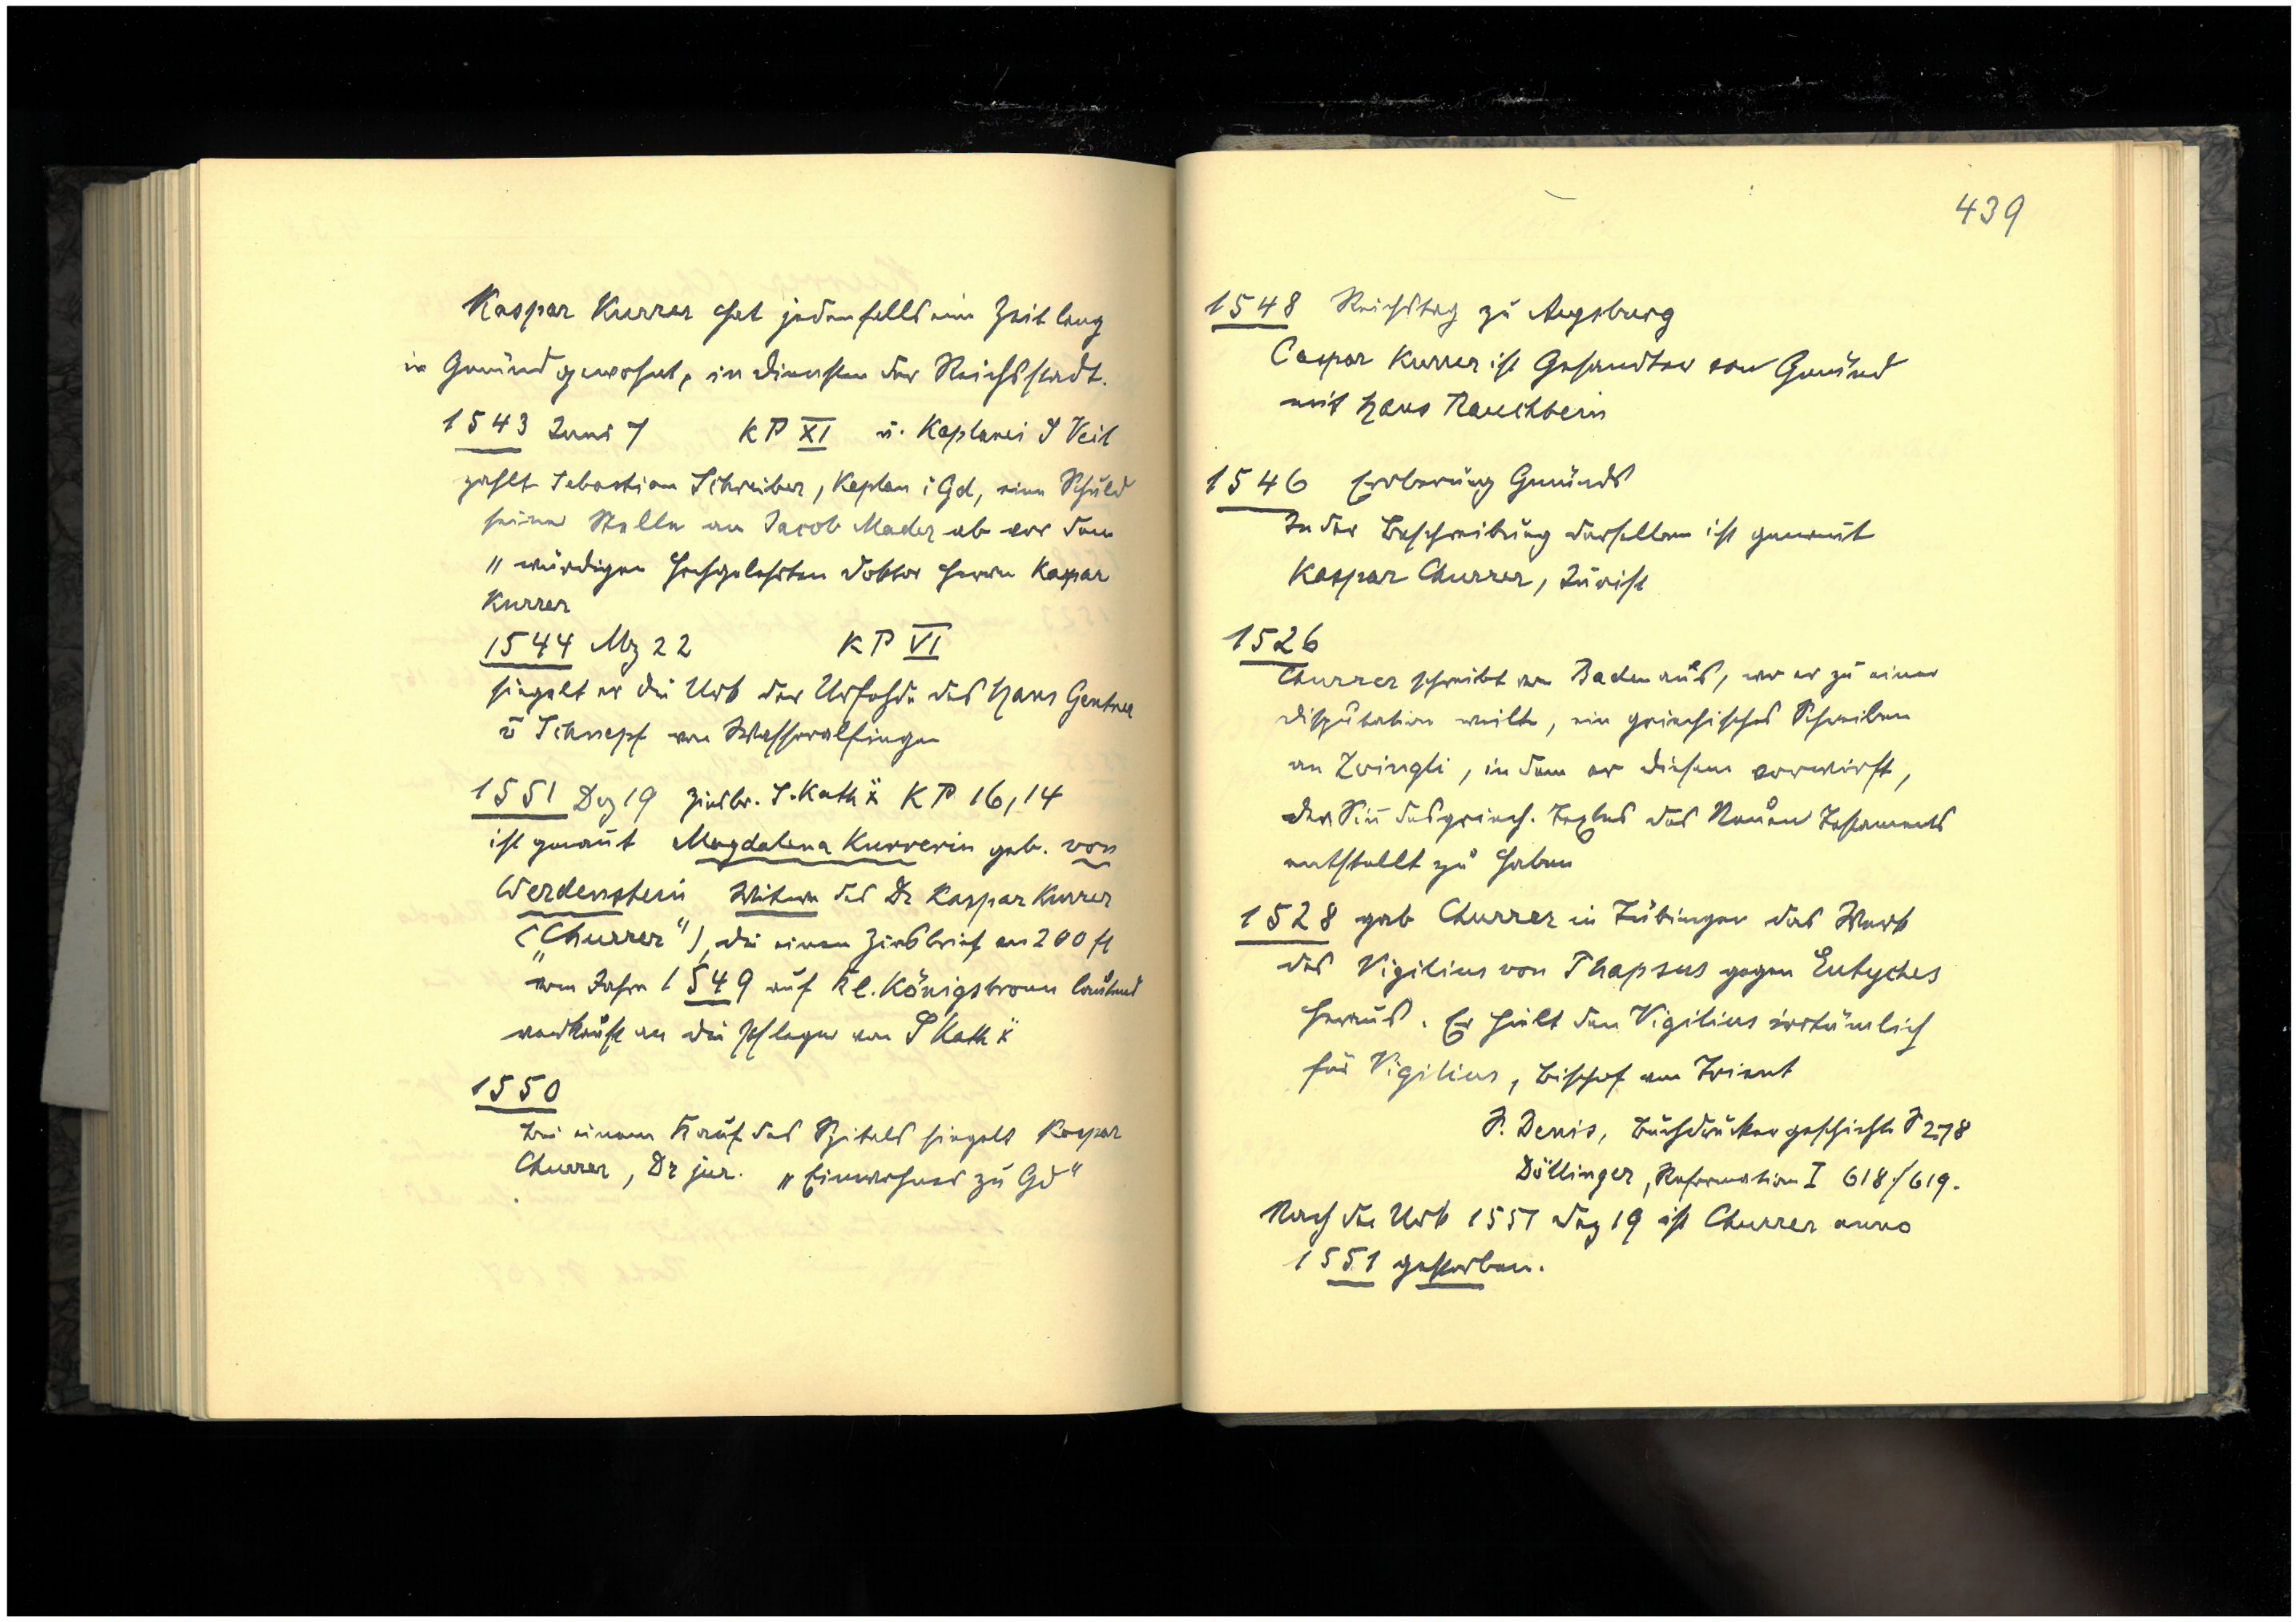 Kaspar Kurrer hat jedenfalls eine Zeit lang
in Gmünd gewohnt, in Diensten der Reichsstadt.
1543 Juni 7 KP XI v. Kaplanei S Veit
zahlt Sebastian Schreiber, Kaplan i Gd, eine Schuld
seiner Stelle an Jacob Mader ab vor dem
„würdigen hochgelehrten Doktor Herrn Kaspar
Kurrer
1544 Mz 22 KP VI
siegelt er die Urk der Urfehde des Hans Gentner
v Schnepf von Wasseralfingen
1551 Dez 19 Zinsbr. S. Kath x̄ KP 16,14
ist genannt Magdalena Kurrerin geb. von
Werdenstein Witwe des Dr Kaspar Kurrer
(„Churrer“), die einen Zinsbrief von 200 fl
vom Jahre 1549 auf Kl. Königsbronn lautend
verkauft an die Pfleger von S Kath x̄
1550
bei einem Kauf des Spitals siegelt Kaspar
Churrer, Dr jur. „Einwohner zu Gd“
439
1548 Reichstag zu Augsburg
Caspar Kurrer ist Gesandter von Gmünd
mit Hans Rauchbein
1546 Eroberung Gmünds
In der Beschreibung derselben ist genannt
Kaspar Churrer, Jurist
1526
Churrer schreibt von Baden aus, wo er zu einer
Disputation weilte, ein griechisches Schreiben
an Zwingli, in dem er diesem vorwirft,
den Sin̄ des griech. Textes des Neuen Testaments
entstellt zu haben
1528 gab Churrer in Tübingen das Werk
des Vigilius von Thapsus gegen Eutyches
heraus. Er hielt den Vigilius irrtümlich
für Vigilius, Bischof von Trient
S. Denis, Buchdruckergeschichte S 278
Döllinger, Reformation I 618/619.
Nach der Urk 1551 Dez 19 ist Churrer anno
1551 gestorben.